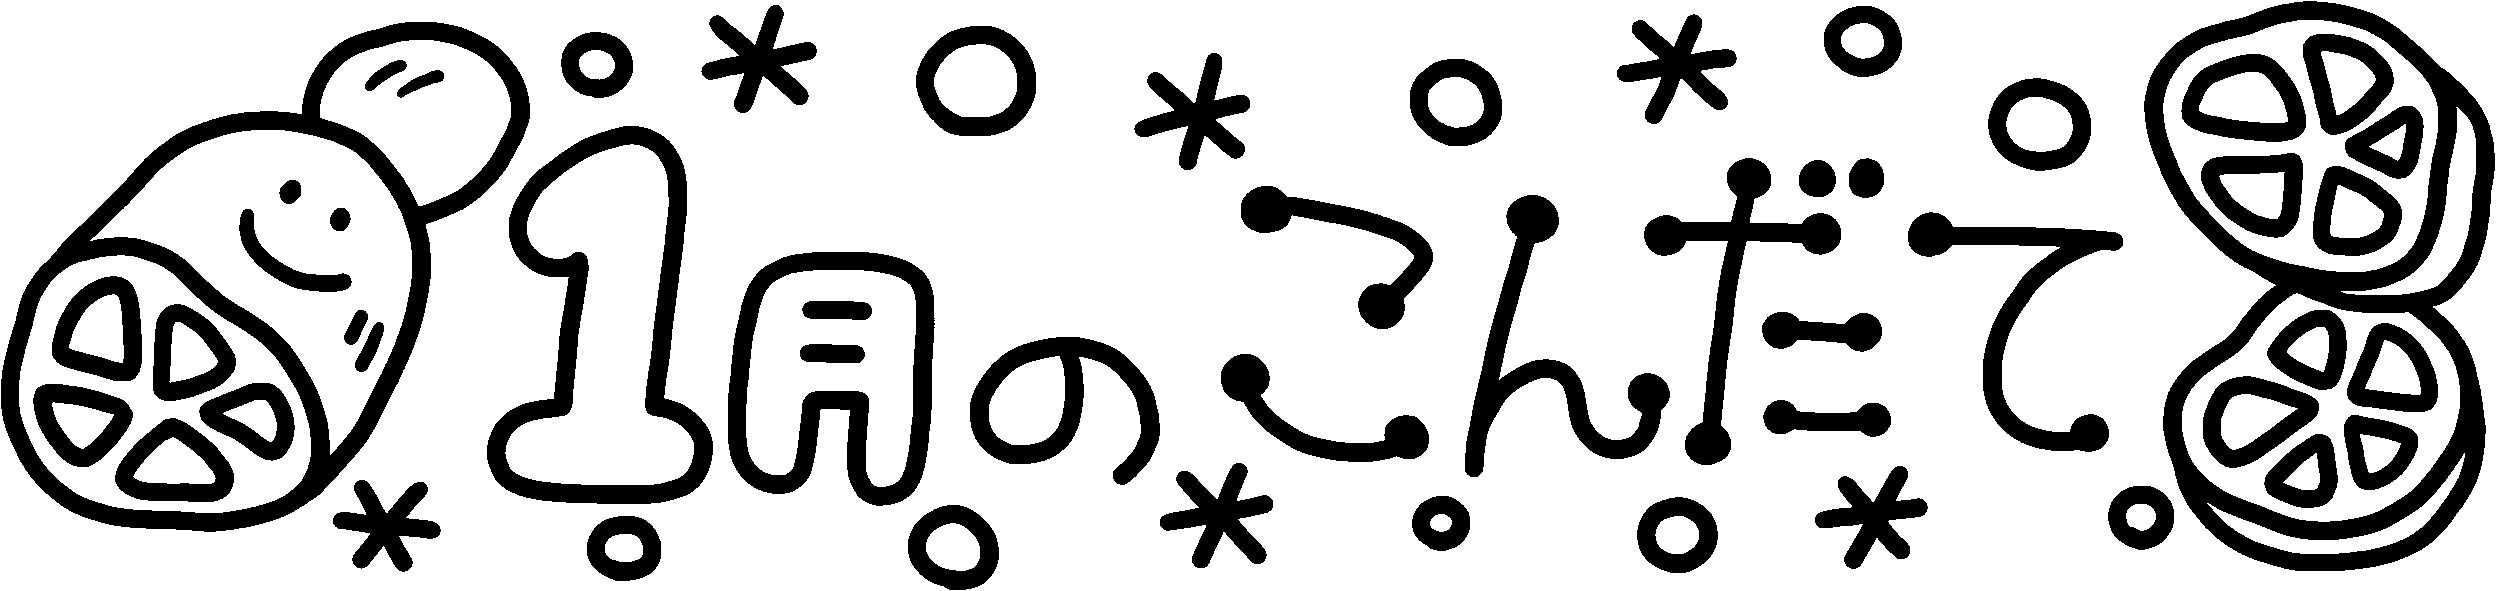 1月のこんだて